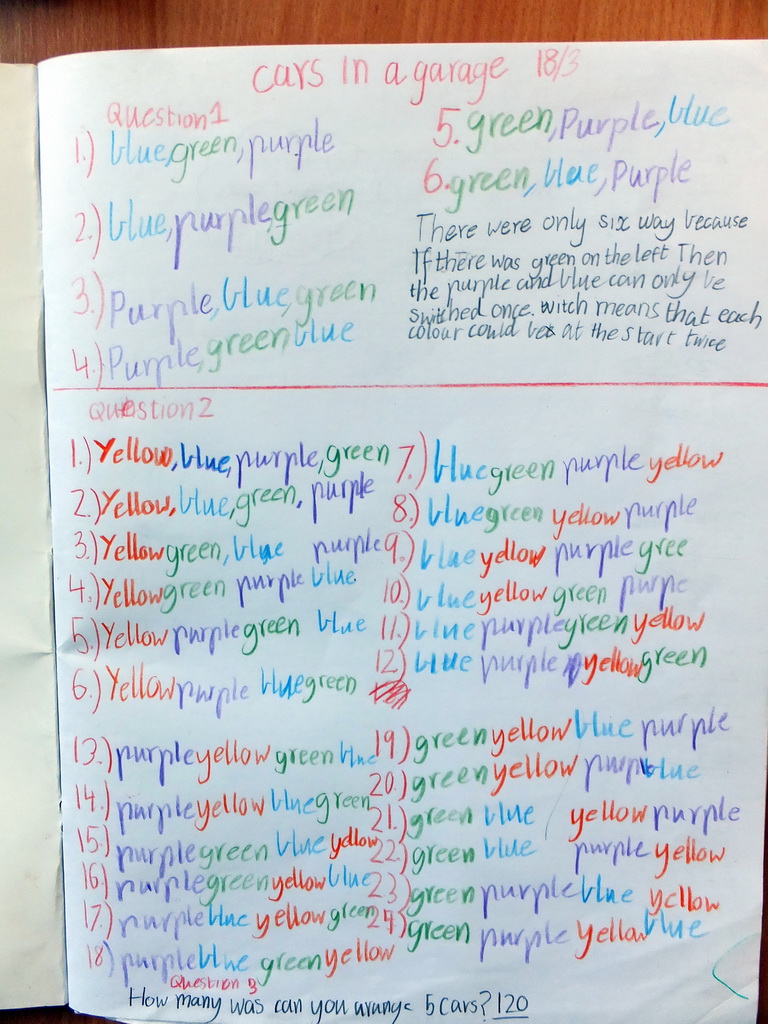 cars in a garage 18/3
Question 1
1.) blue, green, purple
2.) blue, purple, green
3.) Purple, blue, green
4.) Purple, green blue
5. green, Purple, blue
6. green, blue, Purple
There were only six way because
If there was green on the left Then
the purple and blue can only be
switched once. witch means that each
colour could be at the start twice
Question 2
1.) Yellow, blue, purple, green
2.) Yellow, blue, green, purple
3.) Yellow green, blue purple
4.) Yellow green purple blue
5.) Yellow purple green blue
6.) Yellow purple blue green
7.) blue green purple yellow
8.) blue green yellow purple
9.) blue yellow purple gree
10.) blue yellow green purpe
11.) blue purple green yellow
12) blue purple yellow green
13.) purple yellow green blue
14.) purple yellow blue green
15.) purple green blue yellow
16) purple green yellow blue
17.) purple blue yellow green
18) purple blue green yellow
19) green yellow blue purple
20.) green yellow purple blue
21.) green blue yellow purple
22.) green blue purple yellow
23) green purple blue yellow
24) green purple yellow blue
Question 3
How many was can you arange 5 cars? 120